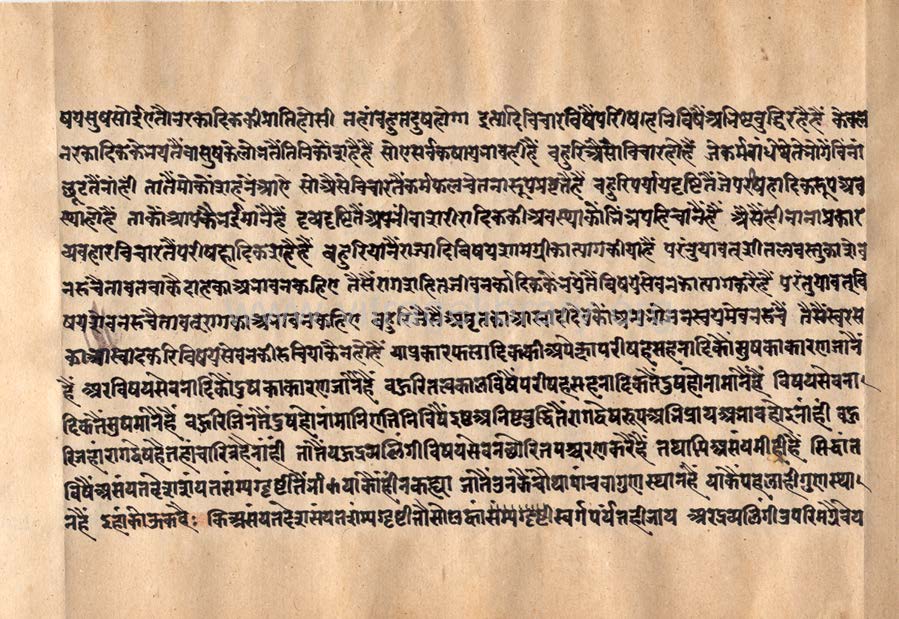 षयसुषसोईएतौनरकादिककीप्राप्तिहोसी तहांबहुतदुषहोगा इत्यादिविचारविषैंपरीषहनिविषैंअनिष्टबुद्धिरहैहैं केवल
नरकादिककेभयतैंवासुषकेलोभतैंतिनिकौंसहैहैं सोएसर्वकषायभावहीहैं बहुरिअैसाविचारहोहैं जेकर्मबांधेथेतेभोगेविनां
छूटतैनांहीं तातैंमोकौंसहनेंआए सोअैसेविचारतैंकर्मफलचेतनारूपप्रवर्तैहैं बहुरिपर्यायदृष्टितैंजेपरीषहादिकरूपअव
स्थाहोहैं ताकौंआपकैंभईमानैंहैं द्रव्यदृष्टितैंअपनीवाशरीरादिककीअवस्थाकौंभिन्नपहिचानैंहैं अैसैंहीनानाप्रकार
व्यवहारविचारतैंपरीषहादिकसहैहैं बहुरियानैंराज्यादिविषयसामग्रीकात्यागकीयाहैं परंतुयावत्शीतलवस्तुकासेव
नरुचैतावतवाकैदाहकाअभावनकहिए तैसैंरागसहितजीवनरकादिककेभयतैंविषयसेवनकात्यागकरैहैं परंतुयावत्वि
षयसेवनरुचैतावतरागकाअभावनकहिए बहुरिजैसैंअमृतकाआस्वादीदेवकौंअन्यभोजनस्वयमेवनरुचैं तैसैंस्वरस
काआस्वादकरिविषयसेवनकीरुचियाकैंनहोहैं याप्रकारफलादिककीअपेक्षापरीषहसहनादिकौंसुषकाकारणजानैं
हैं अरविषयसेवनादिकौंदुषकाकारणजांनैंहैं बहुरितत्कालविषैंपरीषहसहनादिकतैंदुषहोनामांनैहैं विषयसेवना
दिकतैंसुषमांनैहैं बहुरिजिनतैंदुषहोनांमानिएतिनिविषैंइष्टअनिष्टबुद्धितैंरागद्वेषरूपअभिप्रायअभावहोइनांहीं बहु
रिजहांरागद्वेषहैतहांचारित्रहैनांहीं तातैंयहुद्रव्यलिंगीविषयसेवनछोरितपश्चरणकरैहैं तथापिअसंयमीहीहैं सिद्धांत
विषैंअसंयतवदेशसंयतसम्यग्दृष्टितैंभीयाकौंहीनकह्या जातैंउनकैंचौथापांचवागुणस्थानहैं याकैंपहलाहीगुणस्था
नहैं इहांकोऊकहै: किअसंयतदेशसंयतसम्यग्दृष्टीतौसोलह्वांस्वर्गपर्यंतहीजाय अरद्रव्यलिंगीउपरिमग्रैवेय